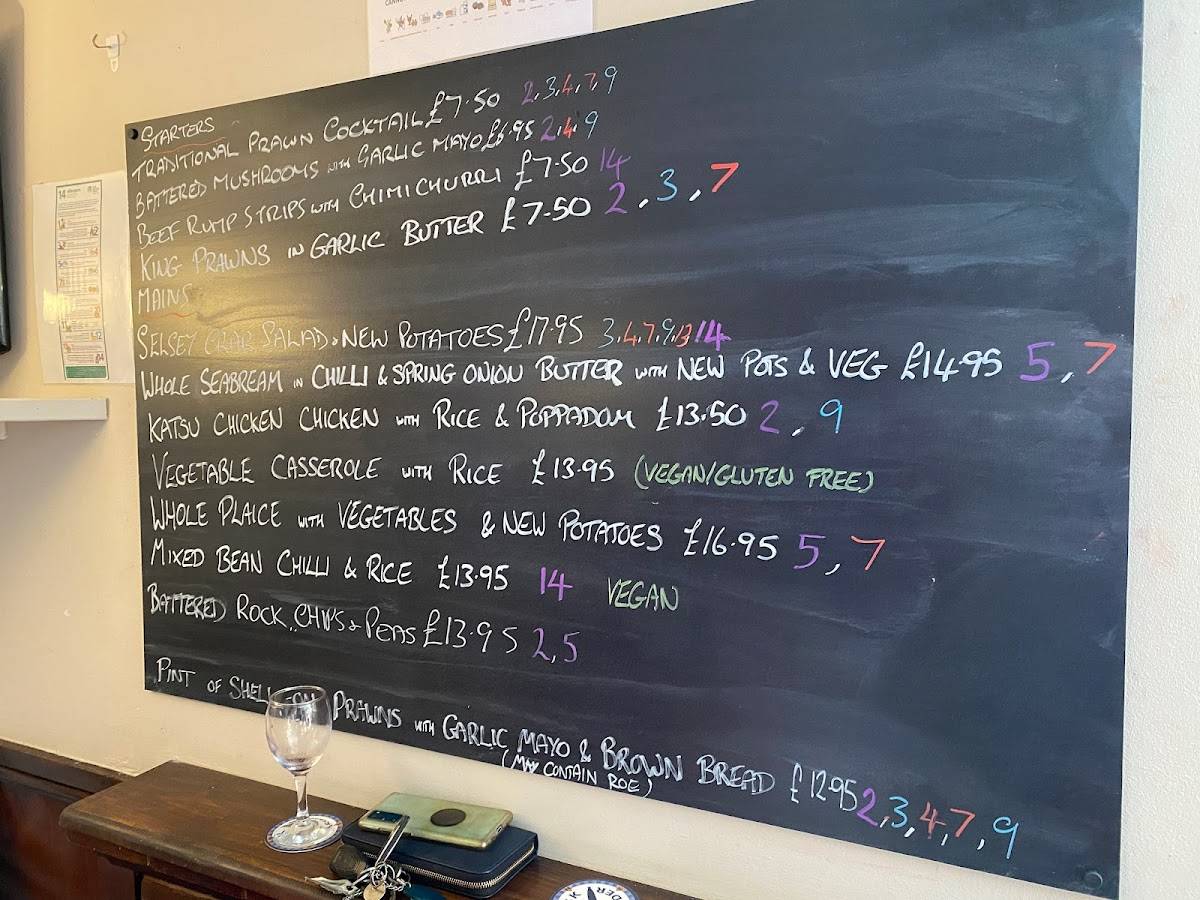 STARTERS
TRADITIONAL PRAWN COCKTAIL £7.50 2,3,4,7,9
BATTERED MUSHROOMS WITH GARLIC MAYO £6.95 2,4,9
BEEF RUMP STRIPS WITH CHIMICHURRI £7.50 14
KING PRAWNS IN GARLIC BUTTER £7.50 2,3,7
MAINS
SELSEY CRAB SALAD & NEW POTATOES £17.95 3,4,7,9,13 14
WHOLE SEABREAM IN CHILLI & SPRING ONION BUTTER WITH NEW POTS & VEG £14.95 5,7
KATSU CHICKEN CHICKEN WITH RICE & POPPADOM £13.50 2,9
VEGETABLE CASSEROLE WITH RICE £13.95 (VEGAN/GLUTEN FREE)
WHOLE PLAICE WITH VEGETABLES & NEW POTATOES £16.95 5,7
MIXED BEAN CHILLI & RICE £13.95 14 VEGAN
BATTERED ROCK, CHIPS & PEAS £13.95 2,5
PINT OF SHELL-ON PRAWNS WITH GARLIC MAYO & BROWN BREAD £12.95 2,3,4,7,9
(MAY CONTAIN ROE)
14